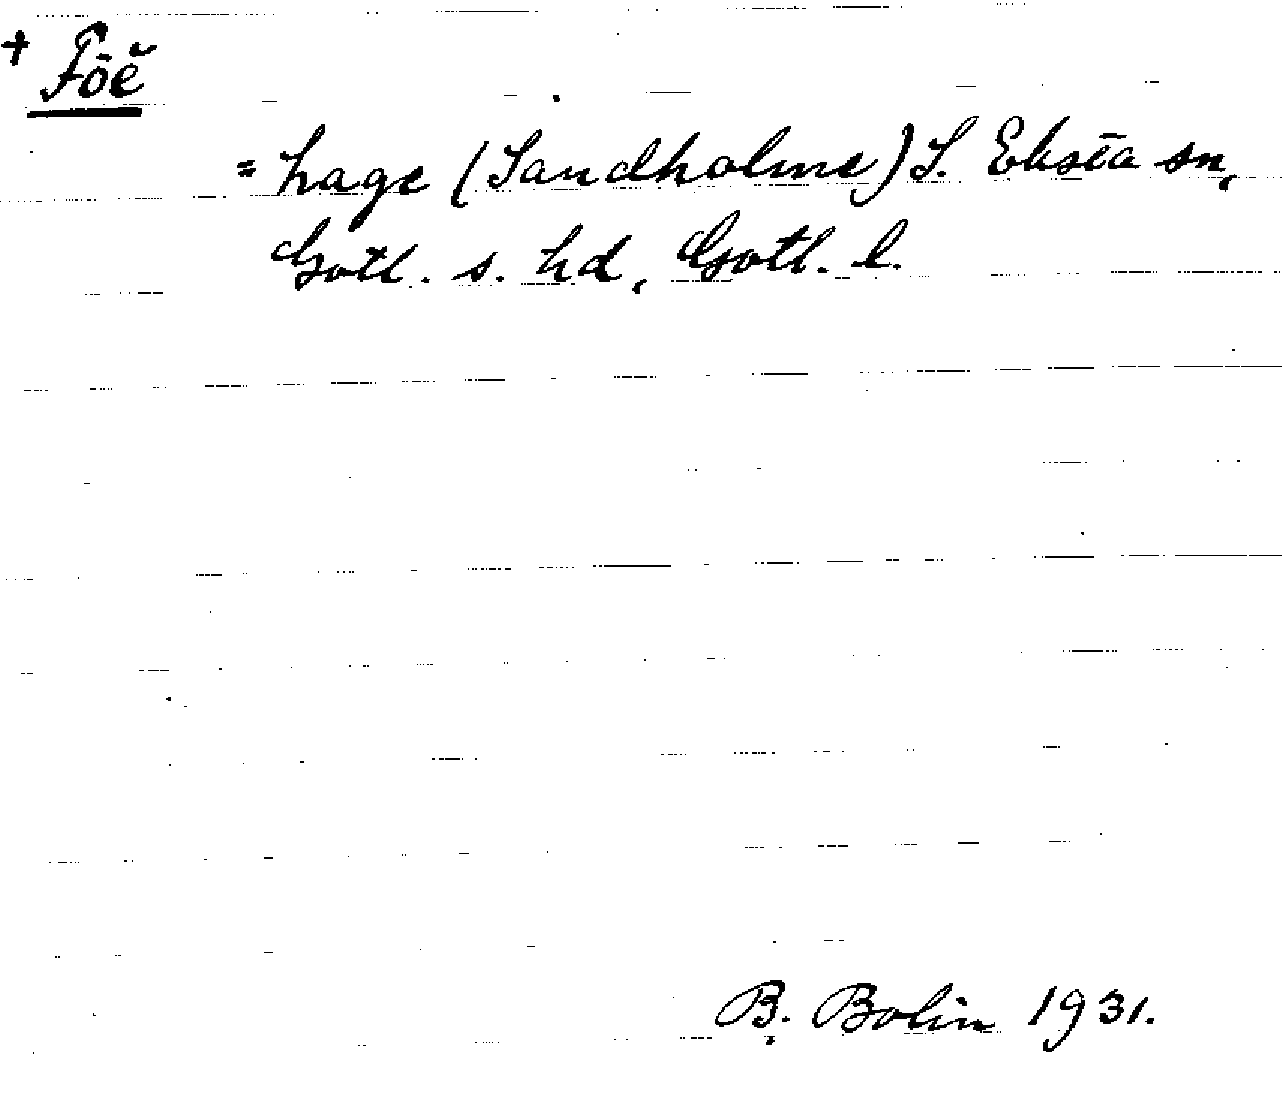 + Föĕ
= hage (Sandholme) S. Eksta sn,
Gotl. s. hd, Gotl. l.
B. Bolin 1931.